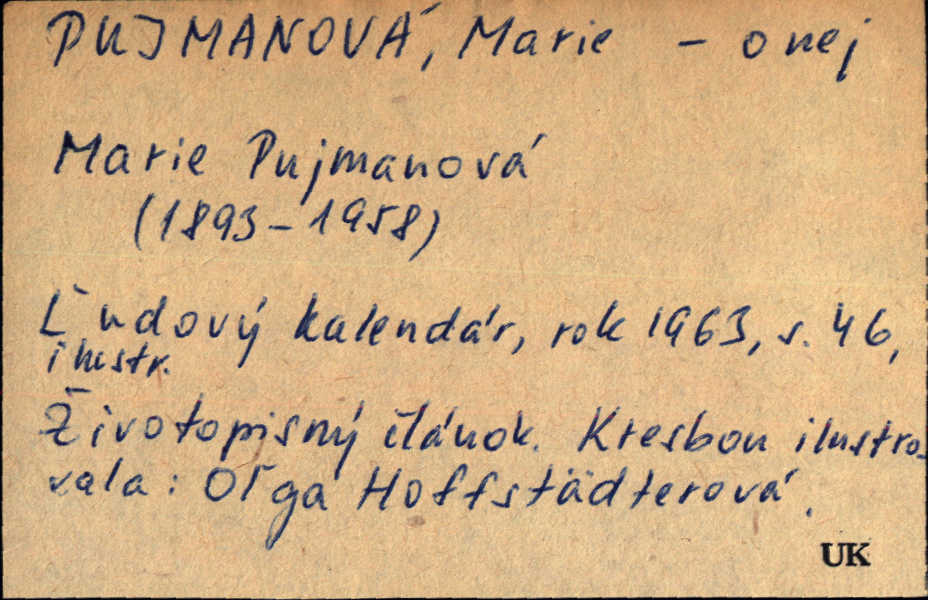 PUJMANOVÁ, Marie - o nej
Marie Pujmanová
(1893-1958)
Ľudový kalendár, rok 1963, s. 46,
ilustr.
Životopisný článok. Kresbou ilustro-
vala: Oľga Hoffstädterová.
UK